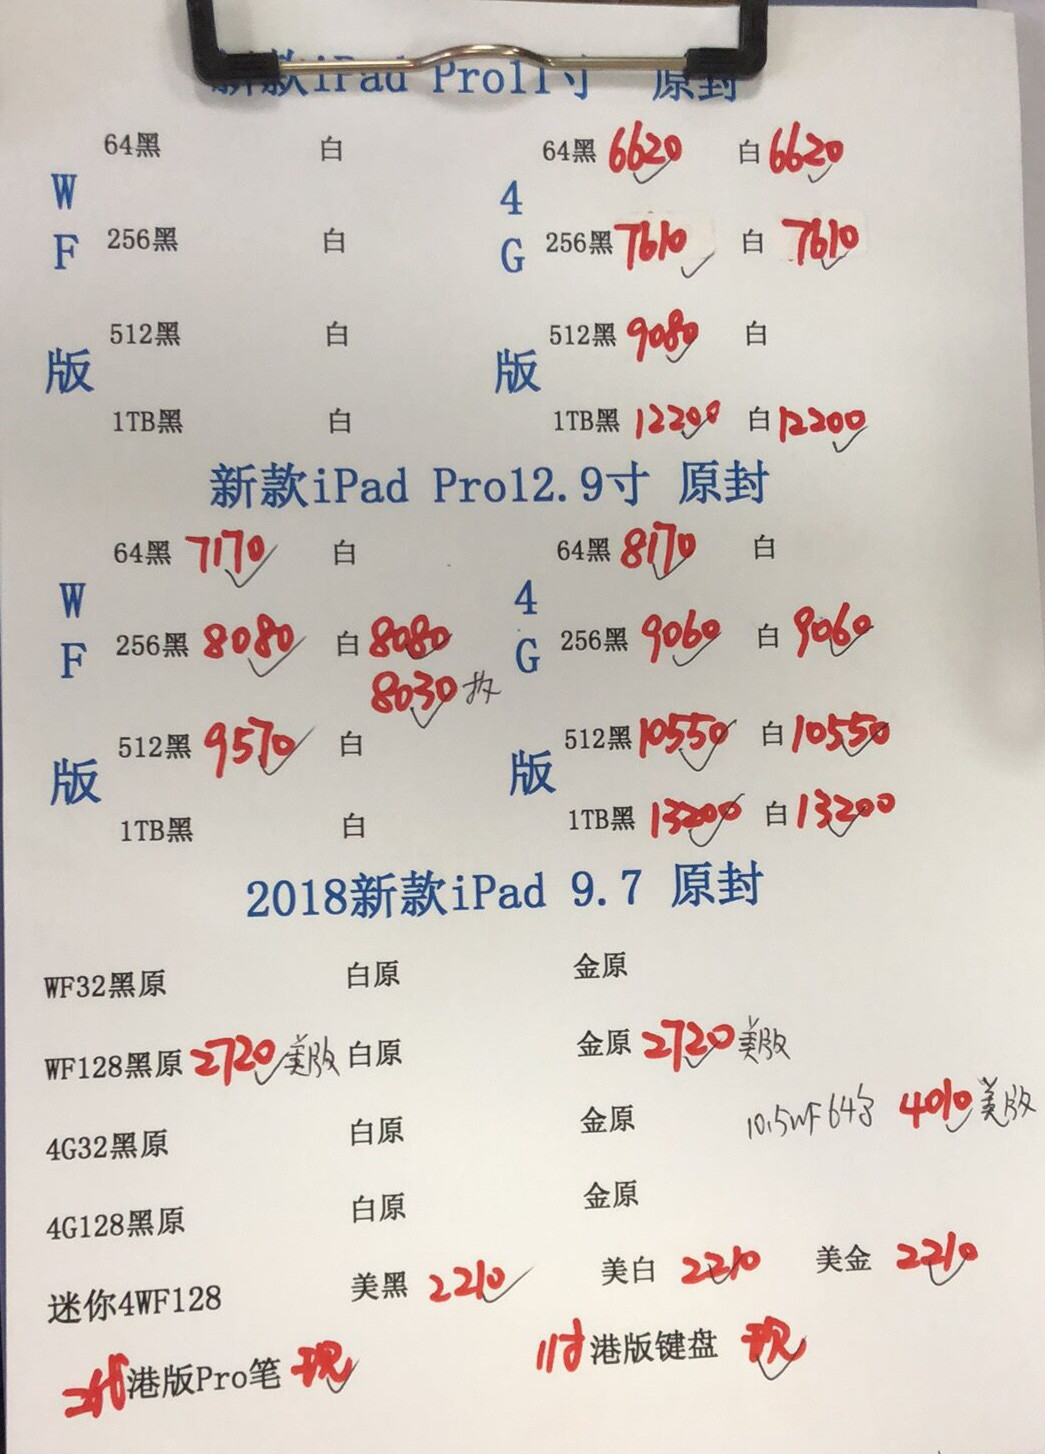 新款iPad Pro11寸 原封
64黑 白 64黑 6620 白 6620
W 4
256黑 白 256黑 7610 白 7610
F G
512黑 白 512黑 9080 白
版 版
1TB黑 白 1TB黑 12200 白 12200
新款iPad Pro12.9寸 原封
64黑 7170 白 64黑 8170 白
W 4
256黑 8080 白 8080 256黑 9060 白 9060
F G
8030
512黑 9570 白 512黑 10550 白 10550
版 版
1TB黑 白 1TB黑 13200 白 13200
2018新款iPad 9.7 原封
WF32黑原 白原 金原
WF128黑原 2720 美版 白原 金原 2720 美版
10.5WF64 4010 美版
4G32黑原 白原 金原
4G128黑原 白原 金原
迷你4WF128 美黑 2210 美白 2210 美金 2210
港版Pro笔 现 11寸 港版键盘 现